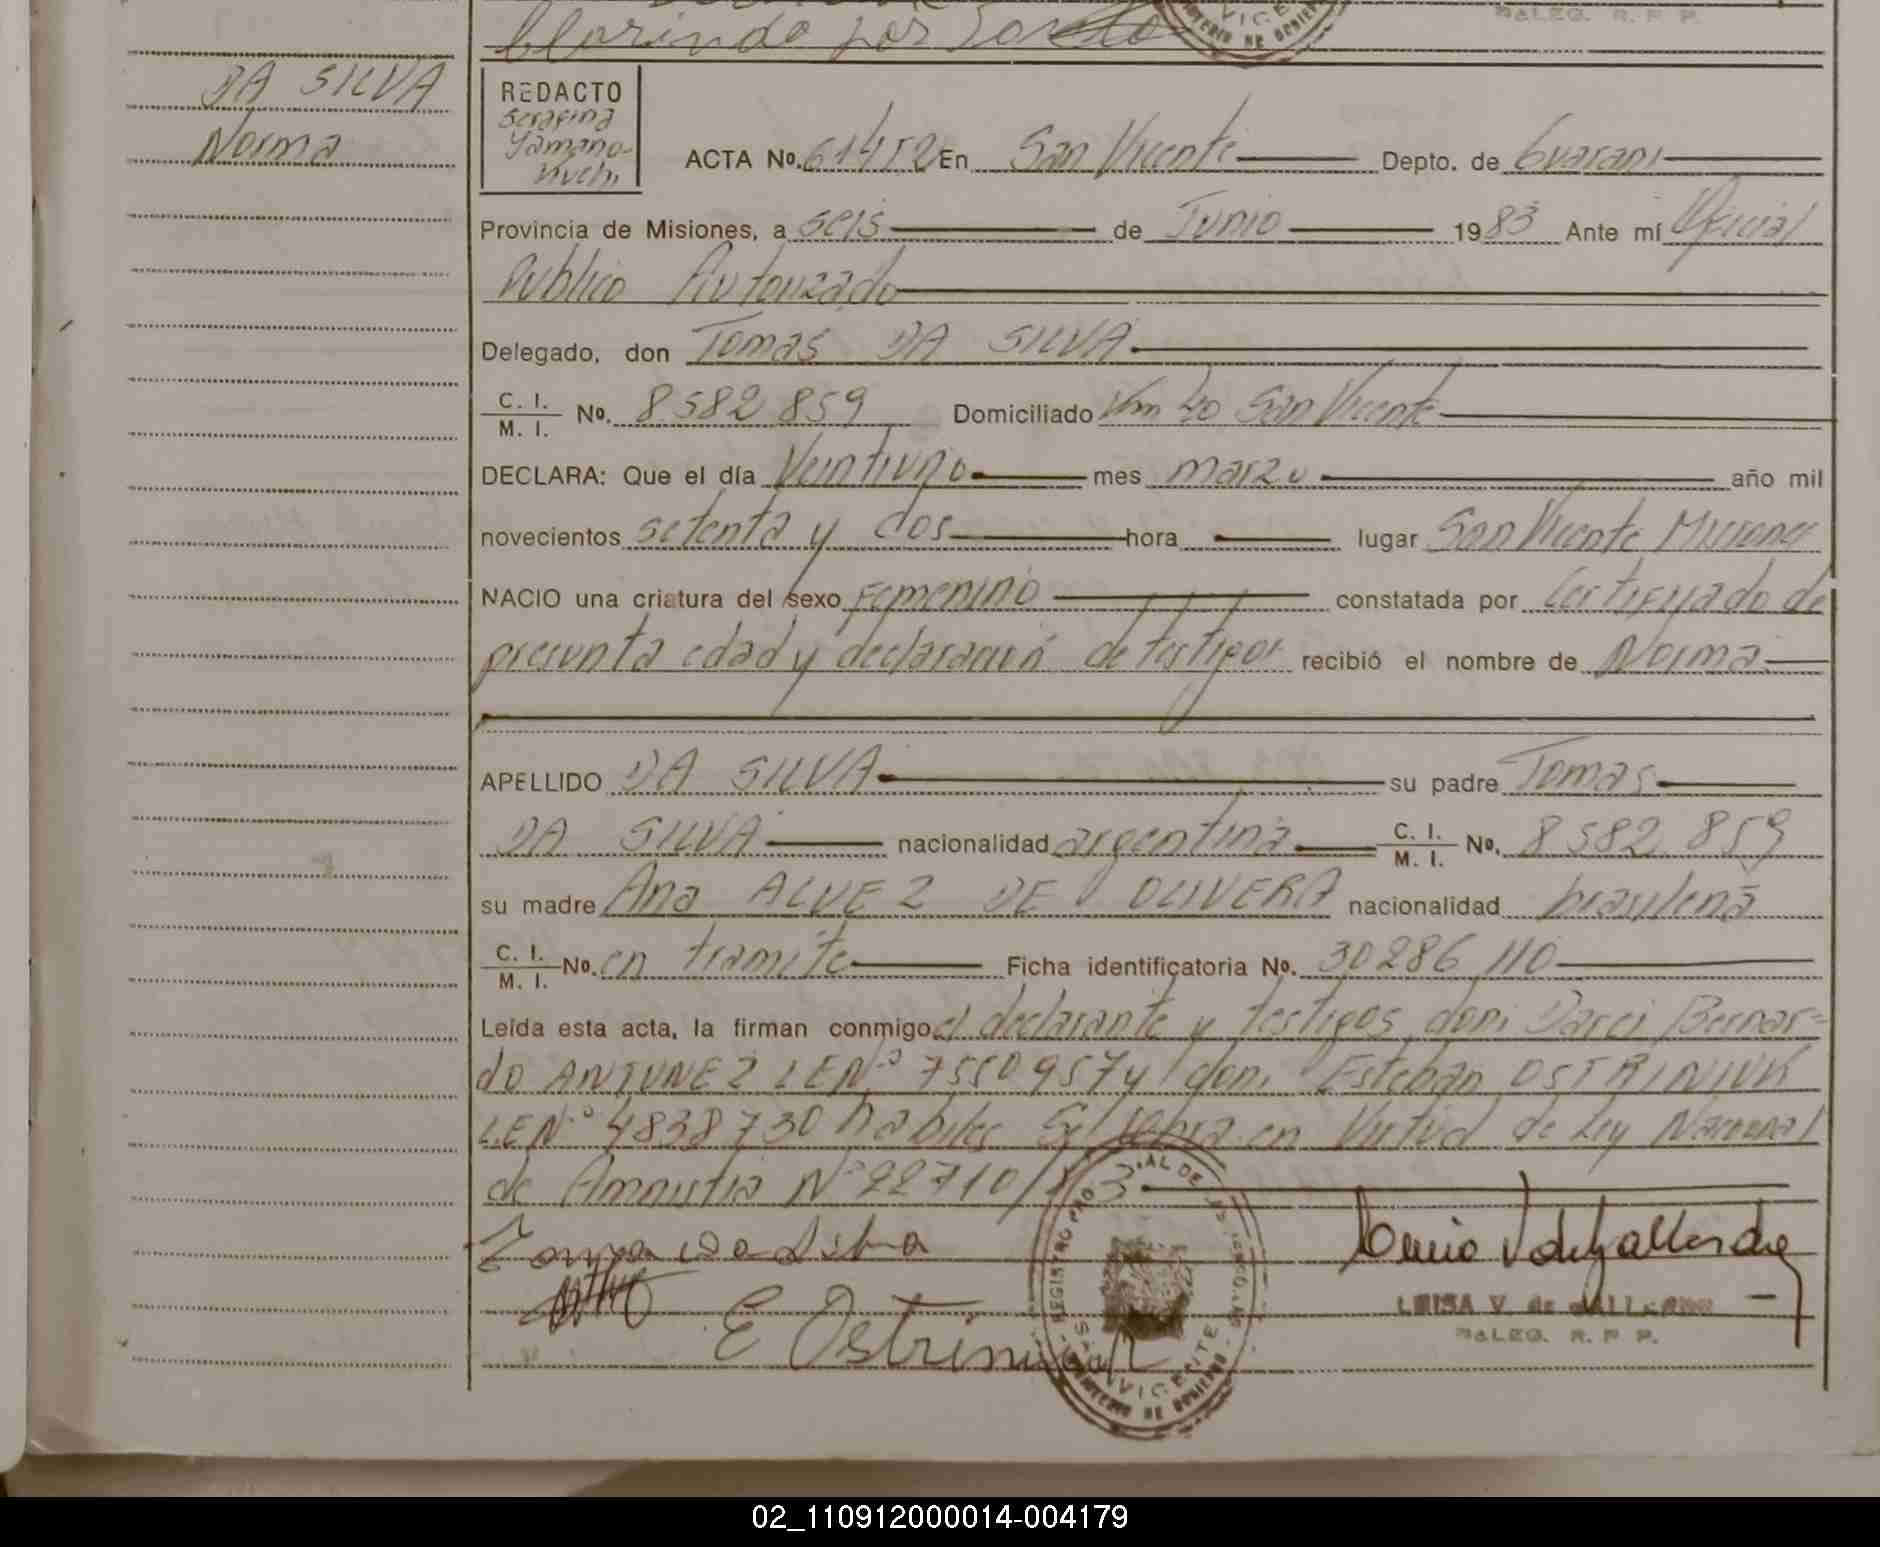 Clorindo por
DA SILVA
Norma
REDACTO
Serafina
ACTA No. 61452 En San Vicente Depto. de Guarani
Provincia de Misiones, a seis de Junio 1983 Ante mí Oficial
Publico Autorizado
Delegado, don Tomas DA SILVA
C. I.
M. I. No. 8582 859 Domiciliado Km 70 San Vicente
DECLARA: Que el día Veintiuno mes marzo año mil
novecientos setenta y dos hora lugar San Vicente Misiones
NACIO una criatura del sexo Femenino constatada por Certificado de
presunta edad y declaración de testigos recibió el nombre de Norma
APELLIDO DA SILVA su padre Tomas
DA SILVA nacionalidad argentina C. I.
M. I. No. 8582 859
su madre Ana ALVEZ DE OLIVERA nacionalidad brasilena
C. I.
M. I. No. en tramite Ficha identificatoria No. 30286 110
Leída esta acta, la firman conmigo el declarante y testigos don: Darci Bernar=
do ANTUNEZ L E Nº 7550957 y don: Esteban
L.E Nº 4838730 habiles Se labra en Virtud de Ley Nacional
de Amnistia Nº 22710/83
E Ostriniuk
REGISTRO PROVINCIAL DE LAS PERSONAS
SAN VICENTE
MINISTERIO DE GOBIERNO
LUISA V. de GALLARDO
DELEG. R. P. P.
02_110912000014-004179